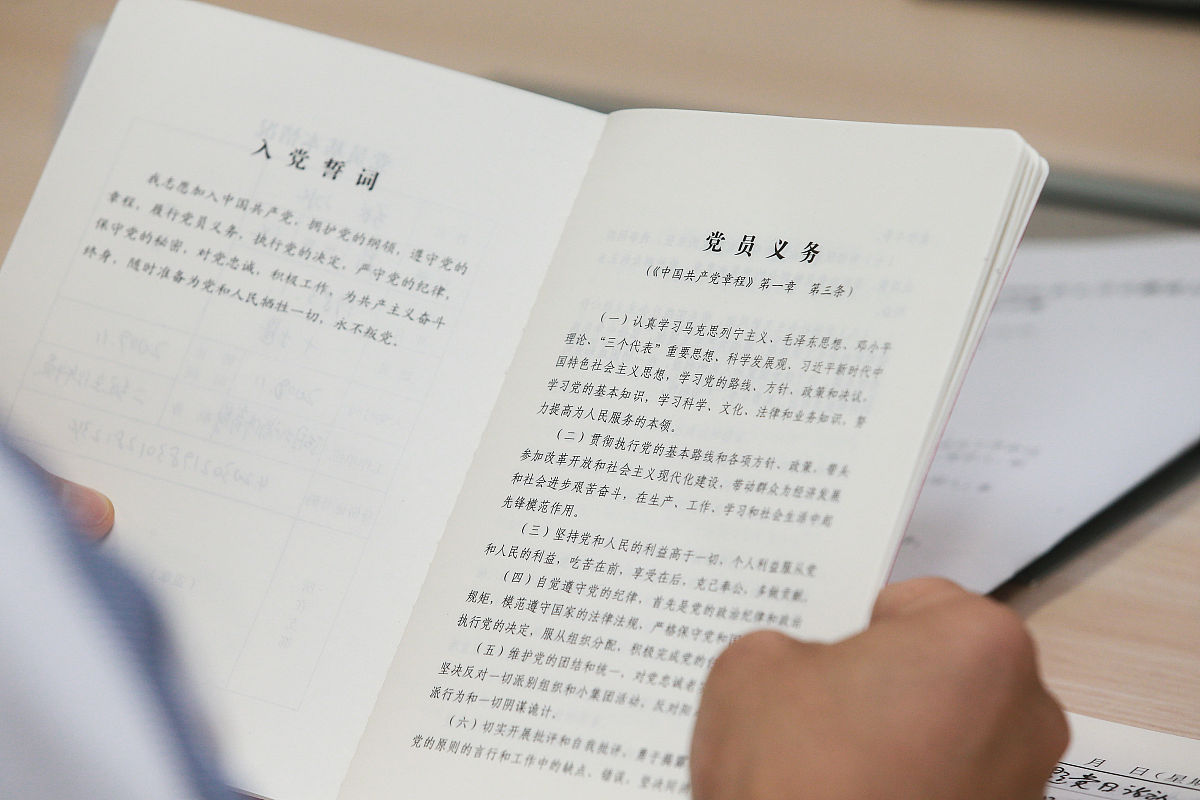 入党誓词
我志愿加入中国共产党，拥护党的纲领，遵守党的
章程，履行党员义务，执行党的决定，严守党的纪律，
保守党的秘密，对党忠诚，积极工作，为共产主义奋斗
终身，随时准备为党和人民牺牲一切，永不叛党。
党员义务
（《中国共产党章程》第一章 第三条）
（一）认真学习马克思列宁主义、毛泽东思想、邓小平
理论、“三个代表”重要思想、科学发展观、习近平新时代中
国特色社会主义思想，学习党的路线、方针、政策和决议，
学习党的基本知识，学习科学、文化、法律和业务知识，努
力提高为人民服务的本领。
（二）贯彻执行党的基本路线和各项方针、政策，带头
参加改革开放和社会主义现代化建设，带动群众为经济发展
和社会进步艰苦奋斗，在生产、工作、学习和社会生活中起
先锋模范作用。
（三）坚持党和人民的利益高于一切，个人利益服从党
和人民的利益，吃苦在前，享受在后，克己奉公，多做贡献。
（四）自觉遵守党的纪律，首先是党的政治纪律和政治
规矩，模范遵守国家的法律法规，严格保守党和国
执行党的决定，服从组织分配，积极完成党的任
（五）维护党的团结和统一，对党忠诚老实
坚决反对一切派别组织和小集团活动，反对阳
派行为和一切阴谋诡计。
（六）切实开展批评和自我批评，勇于揭露
党的原则的言行和工作中的缺点、错误，坚决同
月 日（星期
党日活动